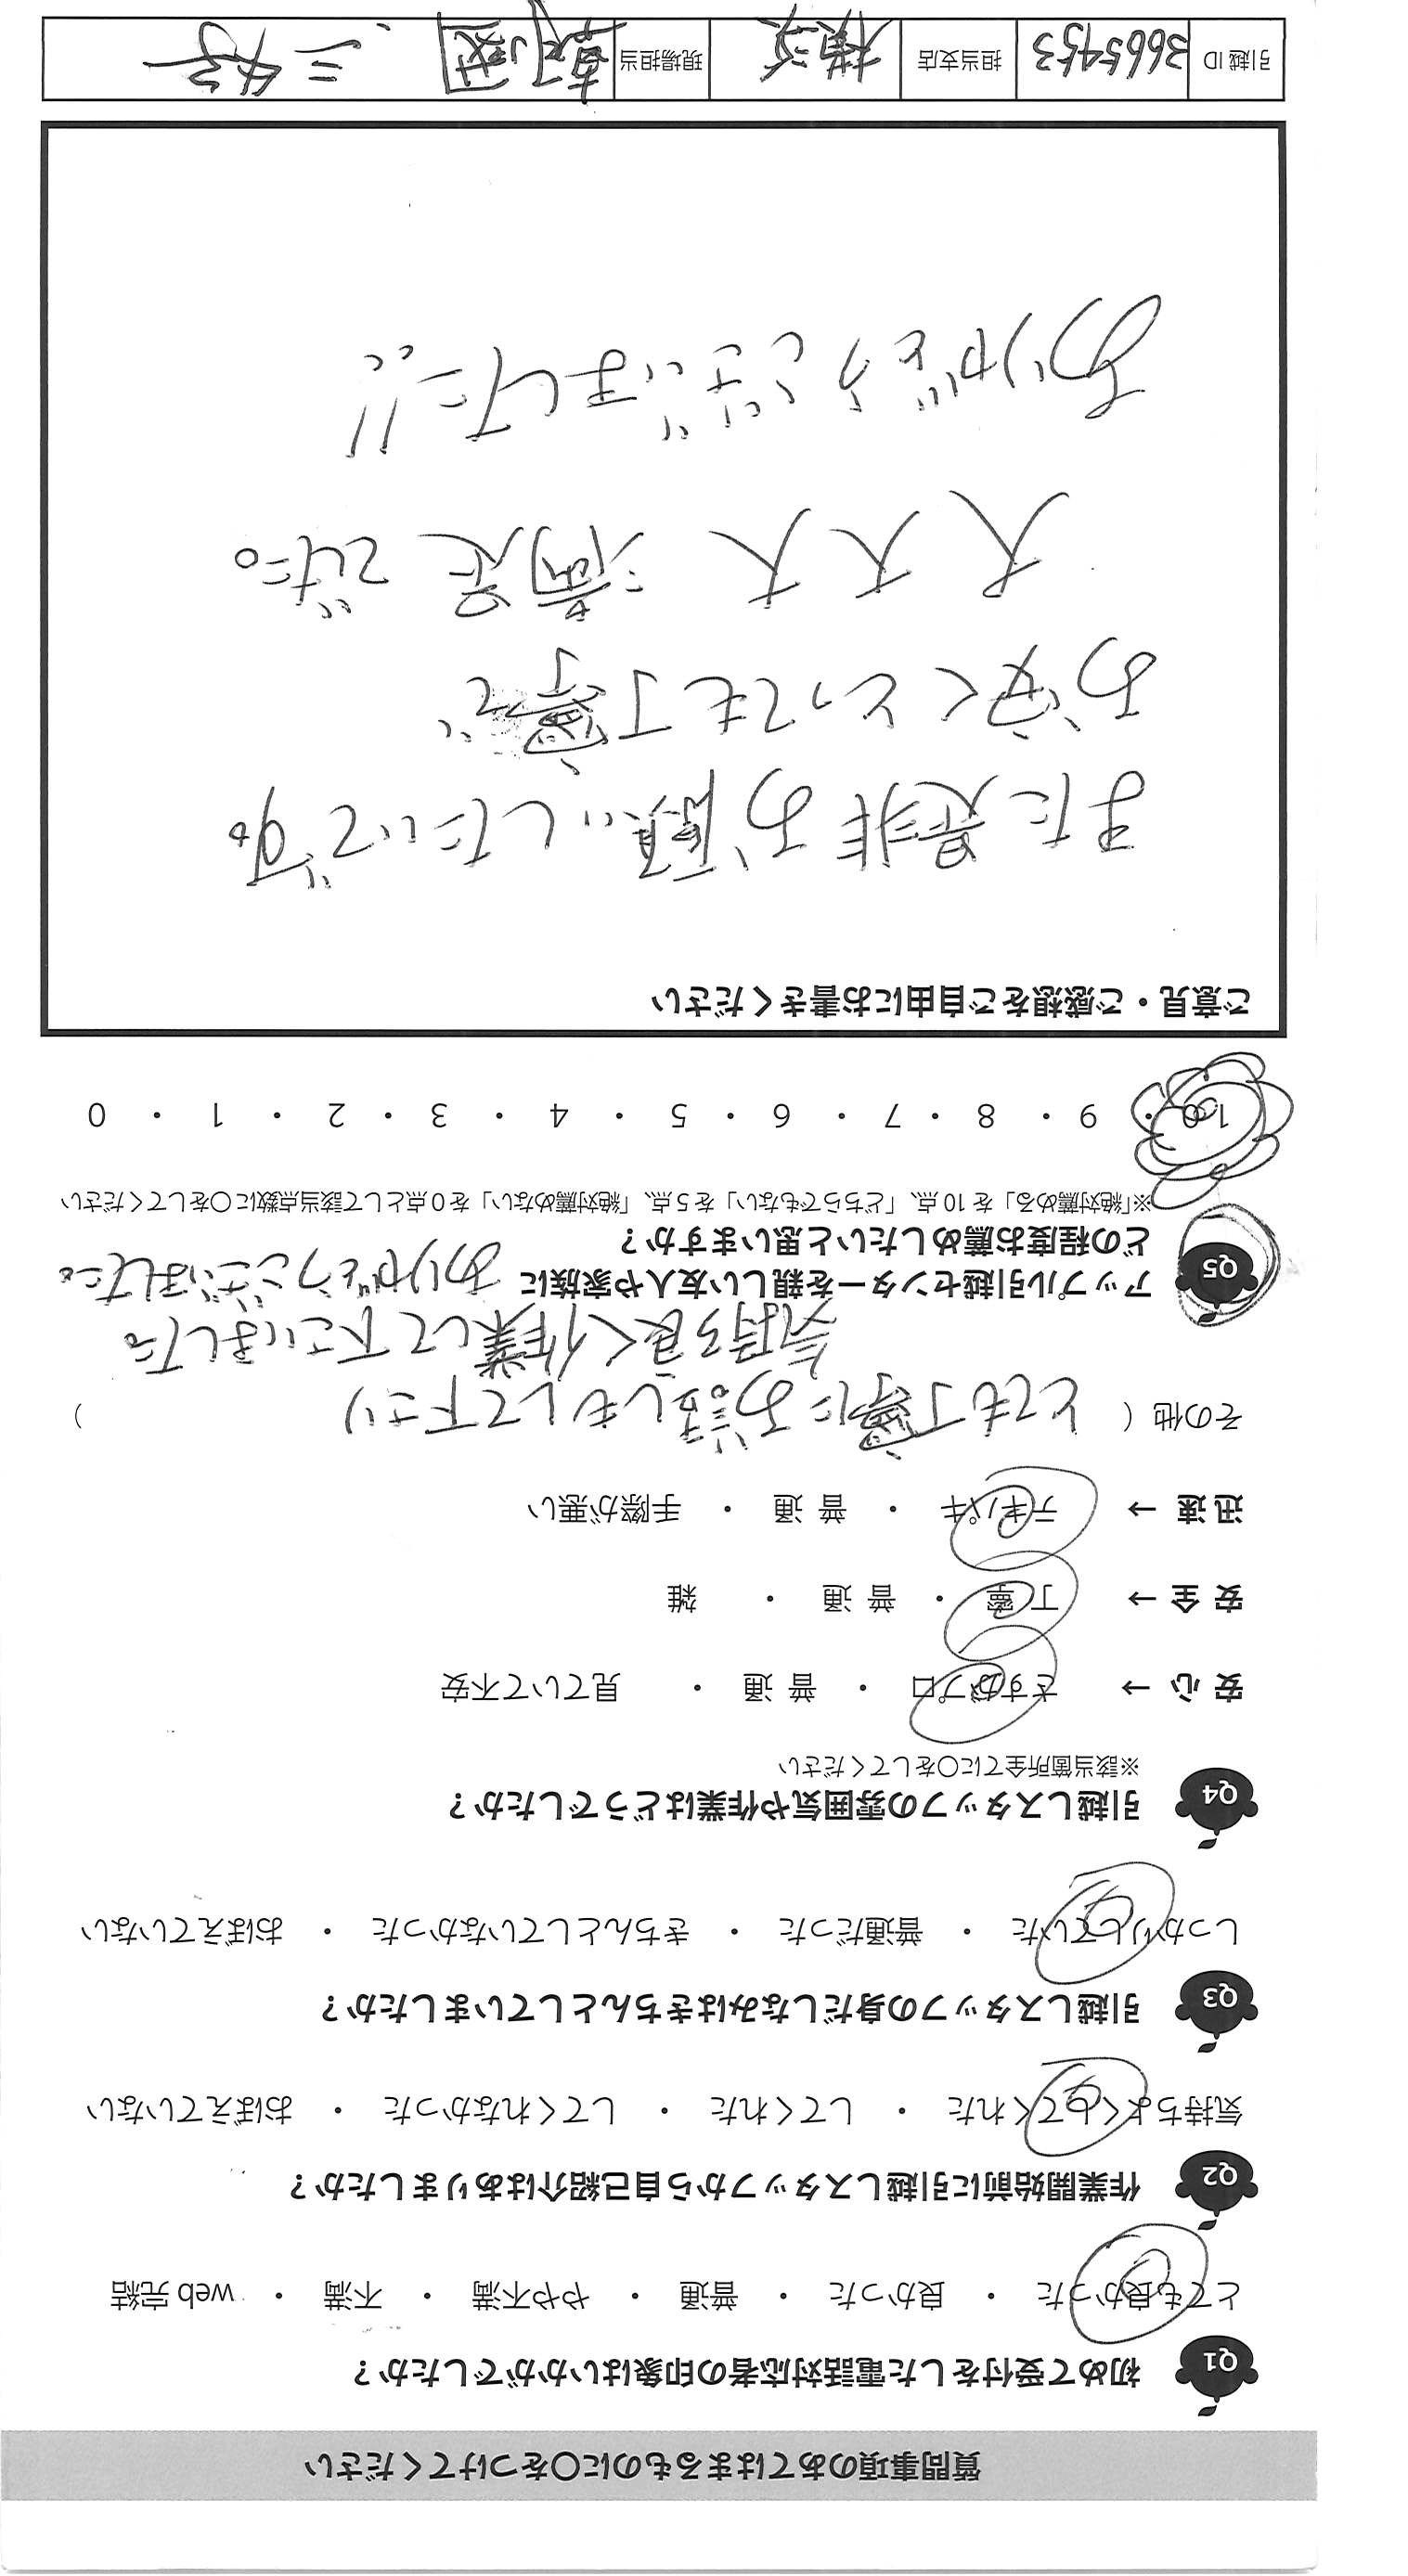 質問事項のあてはまるものに○をつけてください
Q1 初めて受付をした電話対応者の印象はいかがでしたか？
とても良かった ・ 良かった ・ 普通 ・ やや不満 ・ 不満 ・ web 完結
Q2 作業開始前に引越しスタッフから自己紹介はありましたか？
気持ちよくしてくれた ・ してくれた ・ してくれなかった ・ おぼえていない
Q3 引越しスタッフの身だしなみはきちんとしていましたか？
しっかりしていた ・ 普通だった ・ きちんとしていなかった ・ おぼえていない
Q4 引越しスタッフの雰囲気や作業はどうでしたか？
※該当箇所全てに○をしてください
安 心 → さすがプロ ・ 普 通 ・ 見ていて不安
安 全 → 丁 寧 ・ 普 通 ・ 雑
迅 速 → テキパキ ・ 普 通 ・ 手際が悪い
その他（ とても丁寧にお話しもして下さり ）
気持ち良く作業して下さいました。
ありがとうございました。
Q5 アップル引越センターを親しい友人や家族に
どの程度お薦めしたいと思いますか？
※「絶対薦める」を 10 点、「どちらでもない」を 5 点、「絶対薦めない」を 0 点として該当点数に○をしてください
10 ・ 9 ・ 8 ・ 7 ・ 6 ・ 5 ・ 4 ・ 3 ・ 2 ・ 1 ・ 0
ご意見・ご感想をご自由にお書きください
また是非お願いしたいです。
お安くとっても丁寧で
大大大 満足でした。
ありがとうございました!!
引越 ID 3665453 担当支店 横浜 現場担当